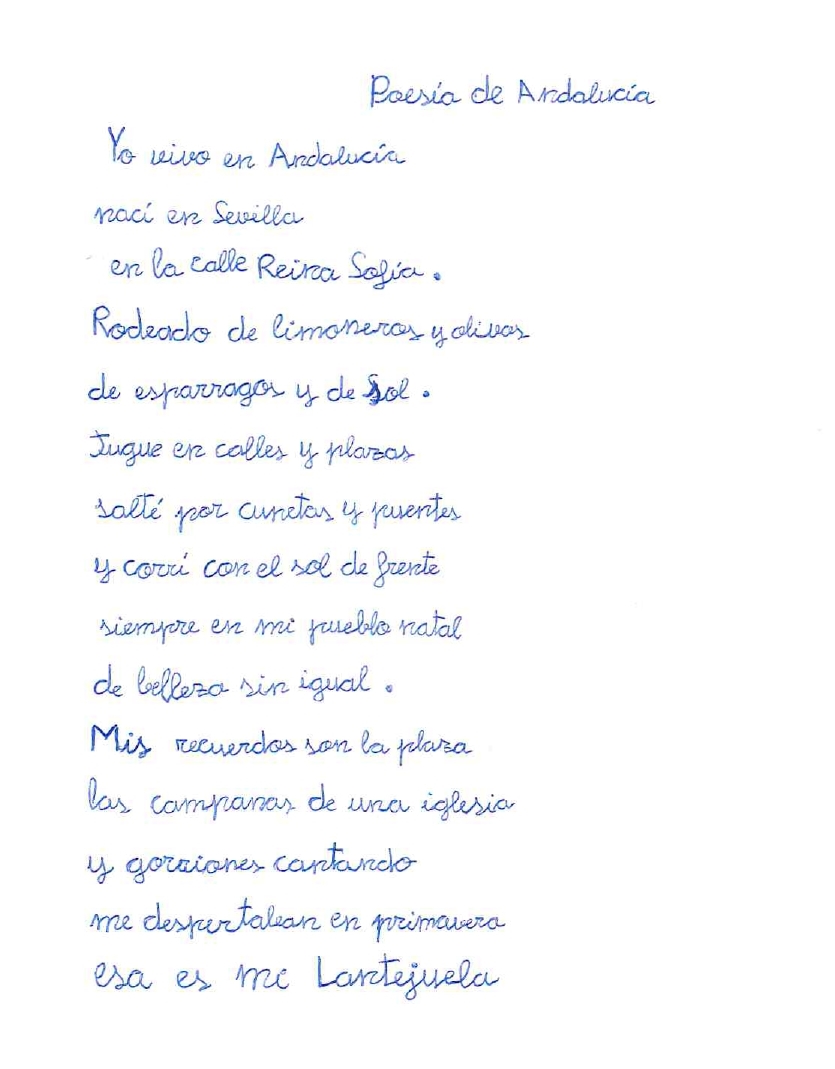 Poesía de Andalucía
Yo vivo en Andalucía
nací en Sevilla
en la calle Reina Sofía.
Rodeado de limoneros y olivos
de esparragos y de Sol.
Jugue en calles y plazas
salté por cunetas y puentes
y corrí con el sol de frente
siempre en mi pueblo natal
de belleza sin igual.
Mis recuerdos son la plaza
las campanas de una iglesia
y gorriones cantando
me despertaban en primavera
esa es mi Lantejuela